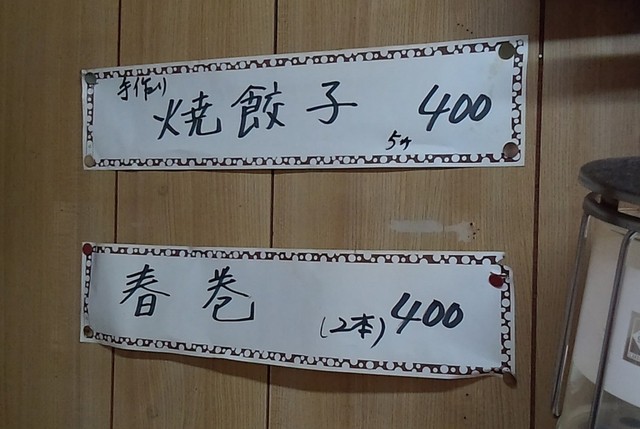 手作り
焼餃子 400
5ヶ
春巻 (2本) 400